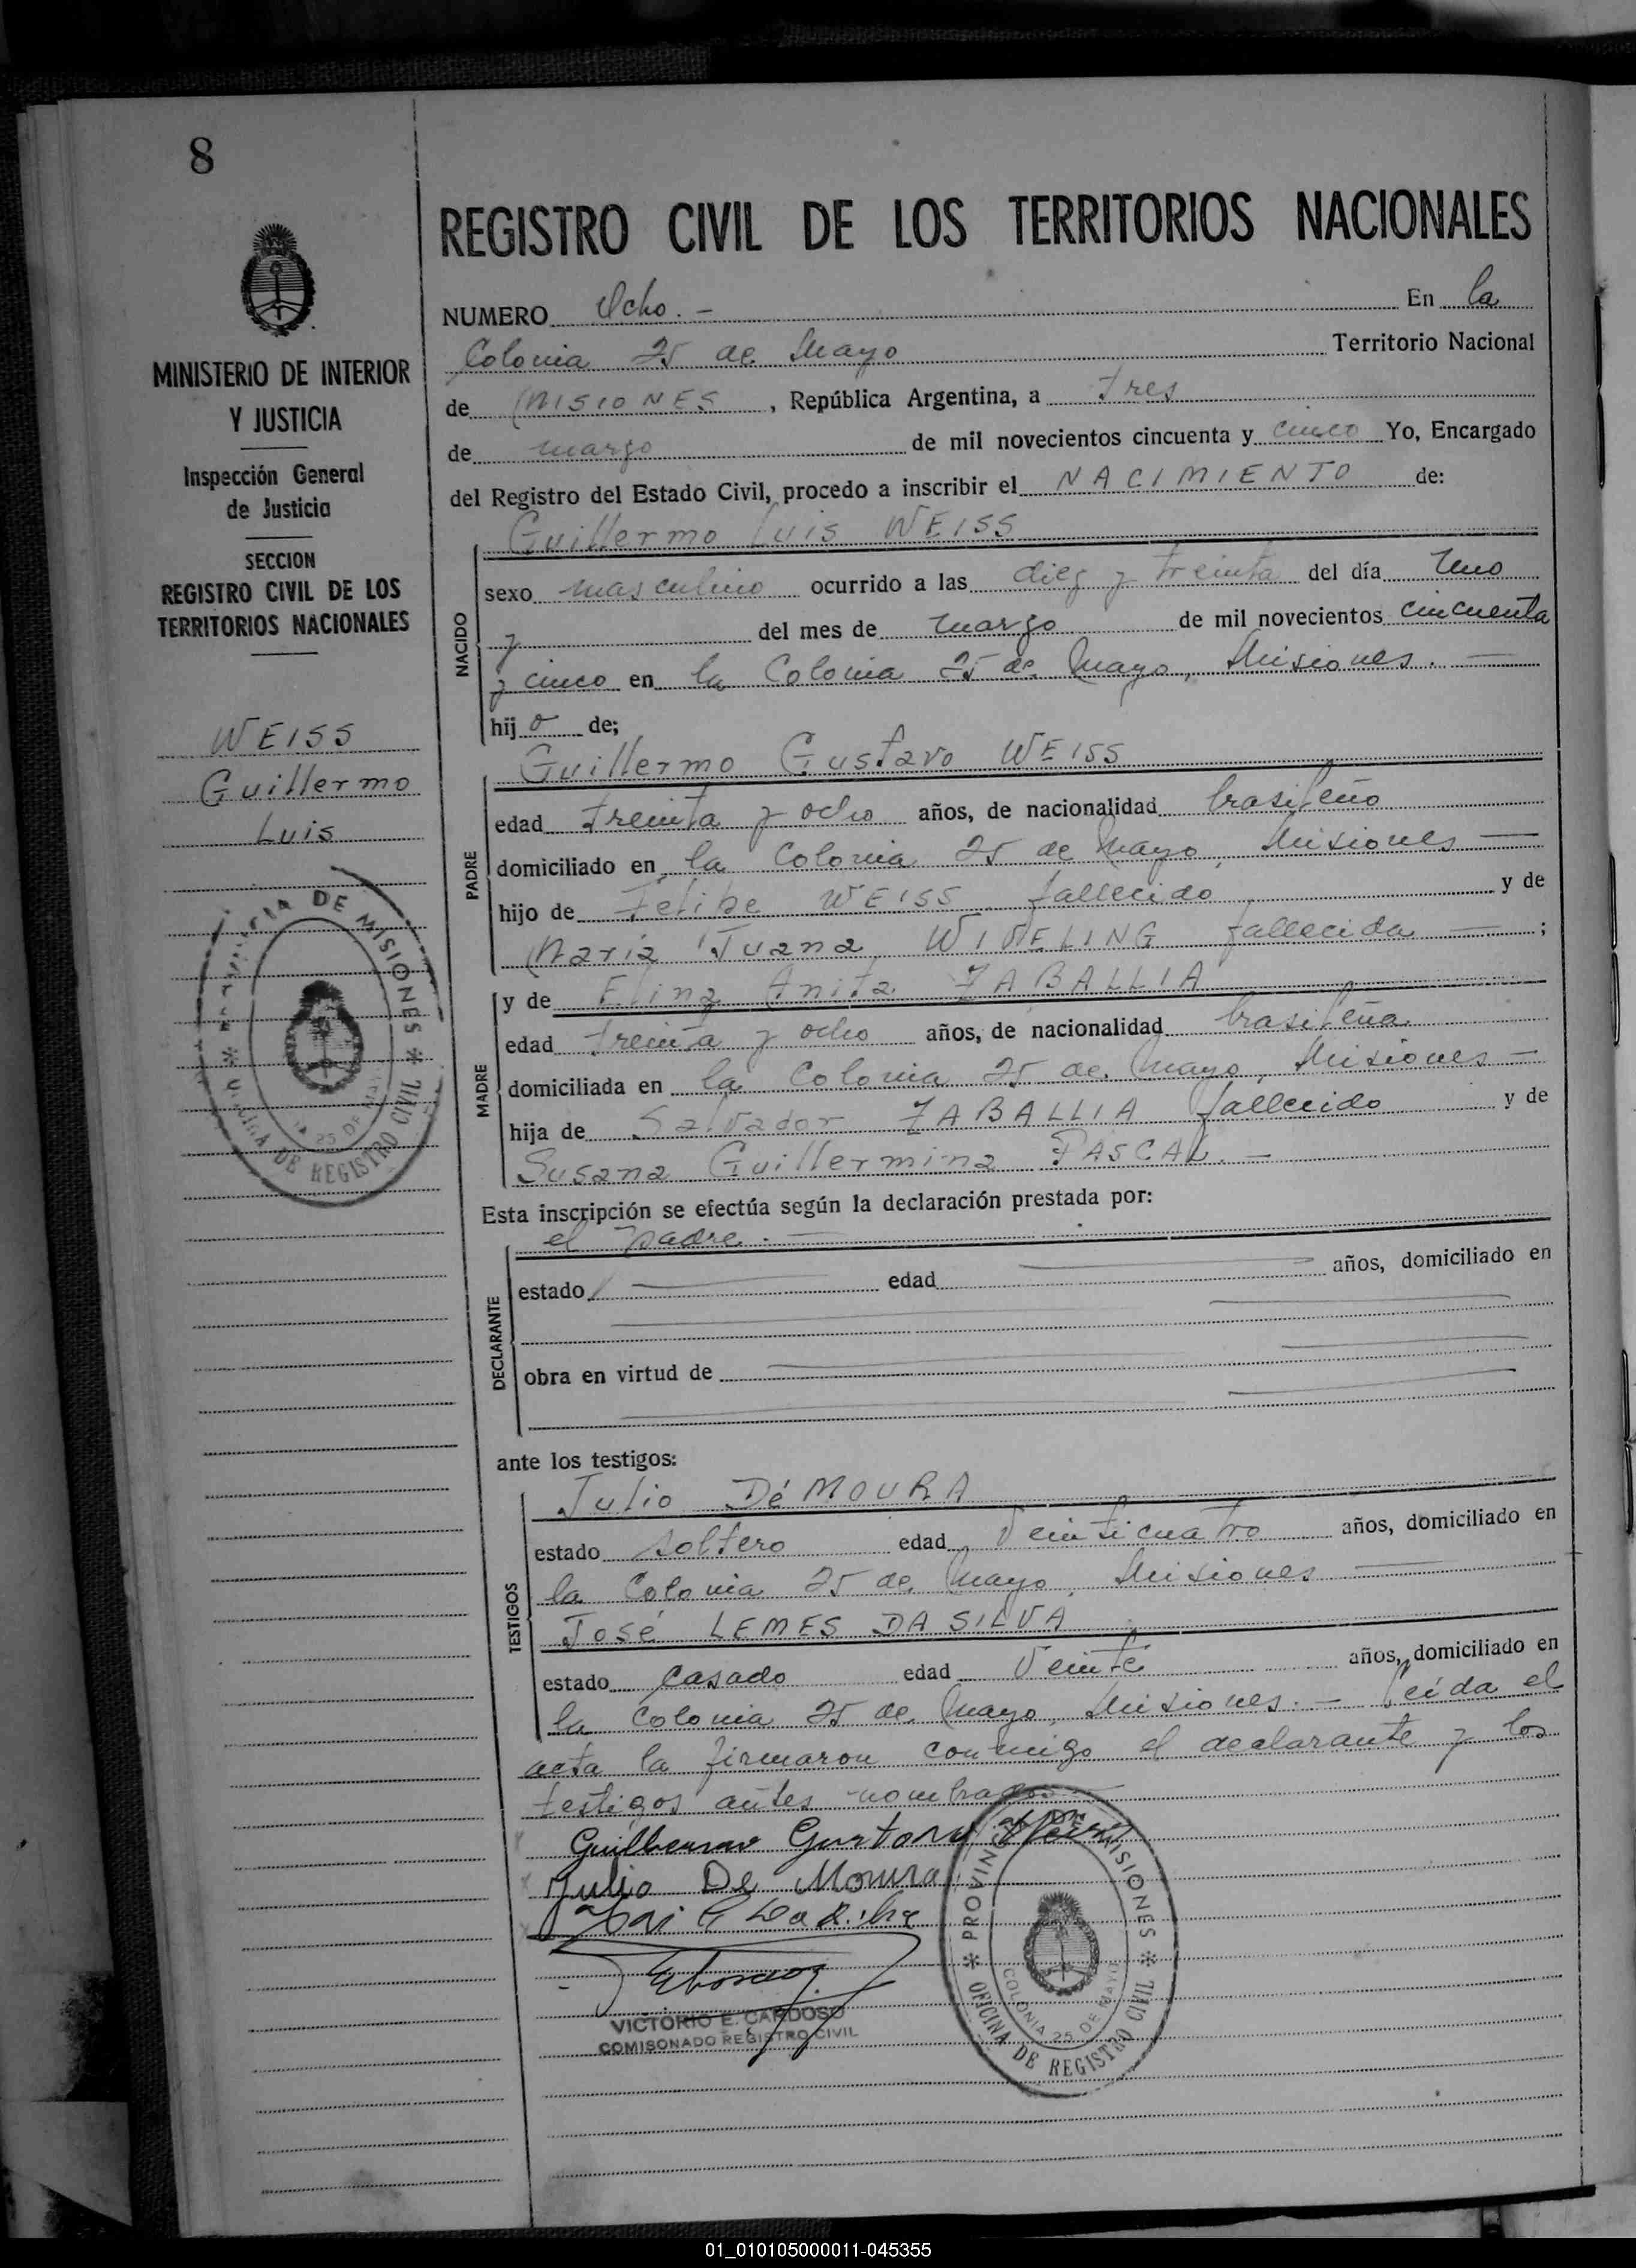 8
MINISTERIO DE INTERIOR
Y JUSTICIA
Inspección General
de Justicia
SECCION
REGISTRO CIVIL DE LOS
TERRITORIOS NACIONALES
WEISS
Guillermo
Luis
DE MISIONES
25 DE
DE REGISTRO CIVIL
REGISTRO CIVIL DE LOS TERRITORIOS NACIONALES
NUMERO Ocho. - En la
Colonia 25 de Mayo Territorio Nacional
de MISIONES, República Argentina, a tres
de marzo de mil novecientos cincuenta y cinco Yo, Encargado
del Registro del Estado Civil, procedo a inscribir el NACIMIENTO de:
Guillermo Luis WEISS
NACIDO
sexo masculino ocurrido a las diez y treinta del día Uno
y del mes de marzo de mil novecientos cincuenta
y cinco en la Colonia 25 de Mayo, Misiones. —
hijo de;
Guillermo Gustavo WEISS
PADRE
edad treinta y ocho años, de nacionalidad brasileño
domiciliado en la Colonia 25 de Mayo, Misiones —
hijo de Felipe WEISS fallecido y de
María Juana fallecida — ;
MADRE
y de Anita ZABALLIA
edad treinta y ocho años, de nacionalidad brasileña
domiciliada en la Colonia 25 de Mayo, Misiones —
hija de Salvador ZABALLIA fallecido y de
Susana Guillermina PASCAL. —
Esta inscripción se efectúa según la declaración prestada por:
el padre. —
DECLARANTE
estado edad años, domiciliado en
obra en virtud de
ante los testigos:
Julio Dé MOURA
TESTIGOS
estado soltero edad Veinticuatro años, domiciliado en
la Colonia 25 de Mayo, Misiones —
José LEMES DA SILVA
estado casado edad Veinte años, domiciliado en
la Colonia 25 de Mayo, Misiones. — Leída el
acta la firmaron conmigo el declarante y los
testigos antes nombrados
Gustavo
Julio De Moura
VICTORIO E. CARDOSO
COMISONADO REGISTRO CIVIL
PROVINCIA DE MISIONES
COLONIA 25 DE MAYO
OFICINA DE REGISTRO CIVIL
01_010105000011-045355